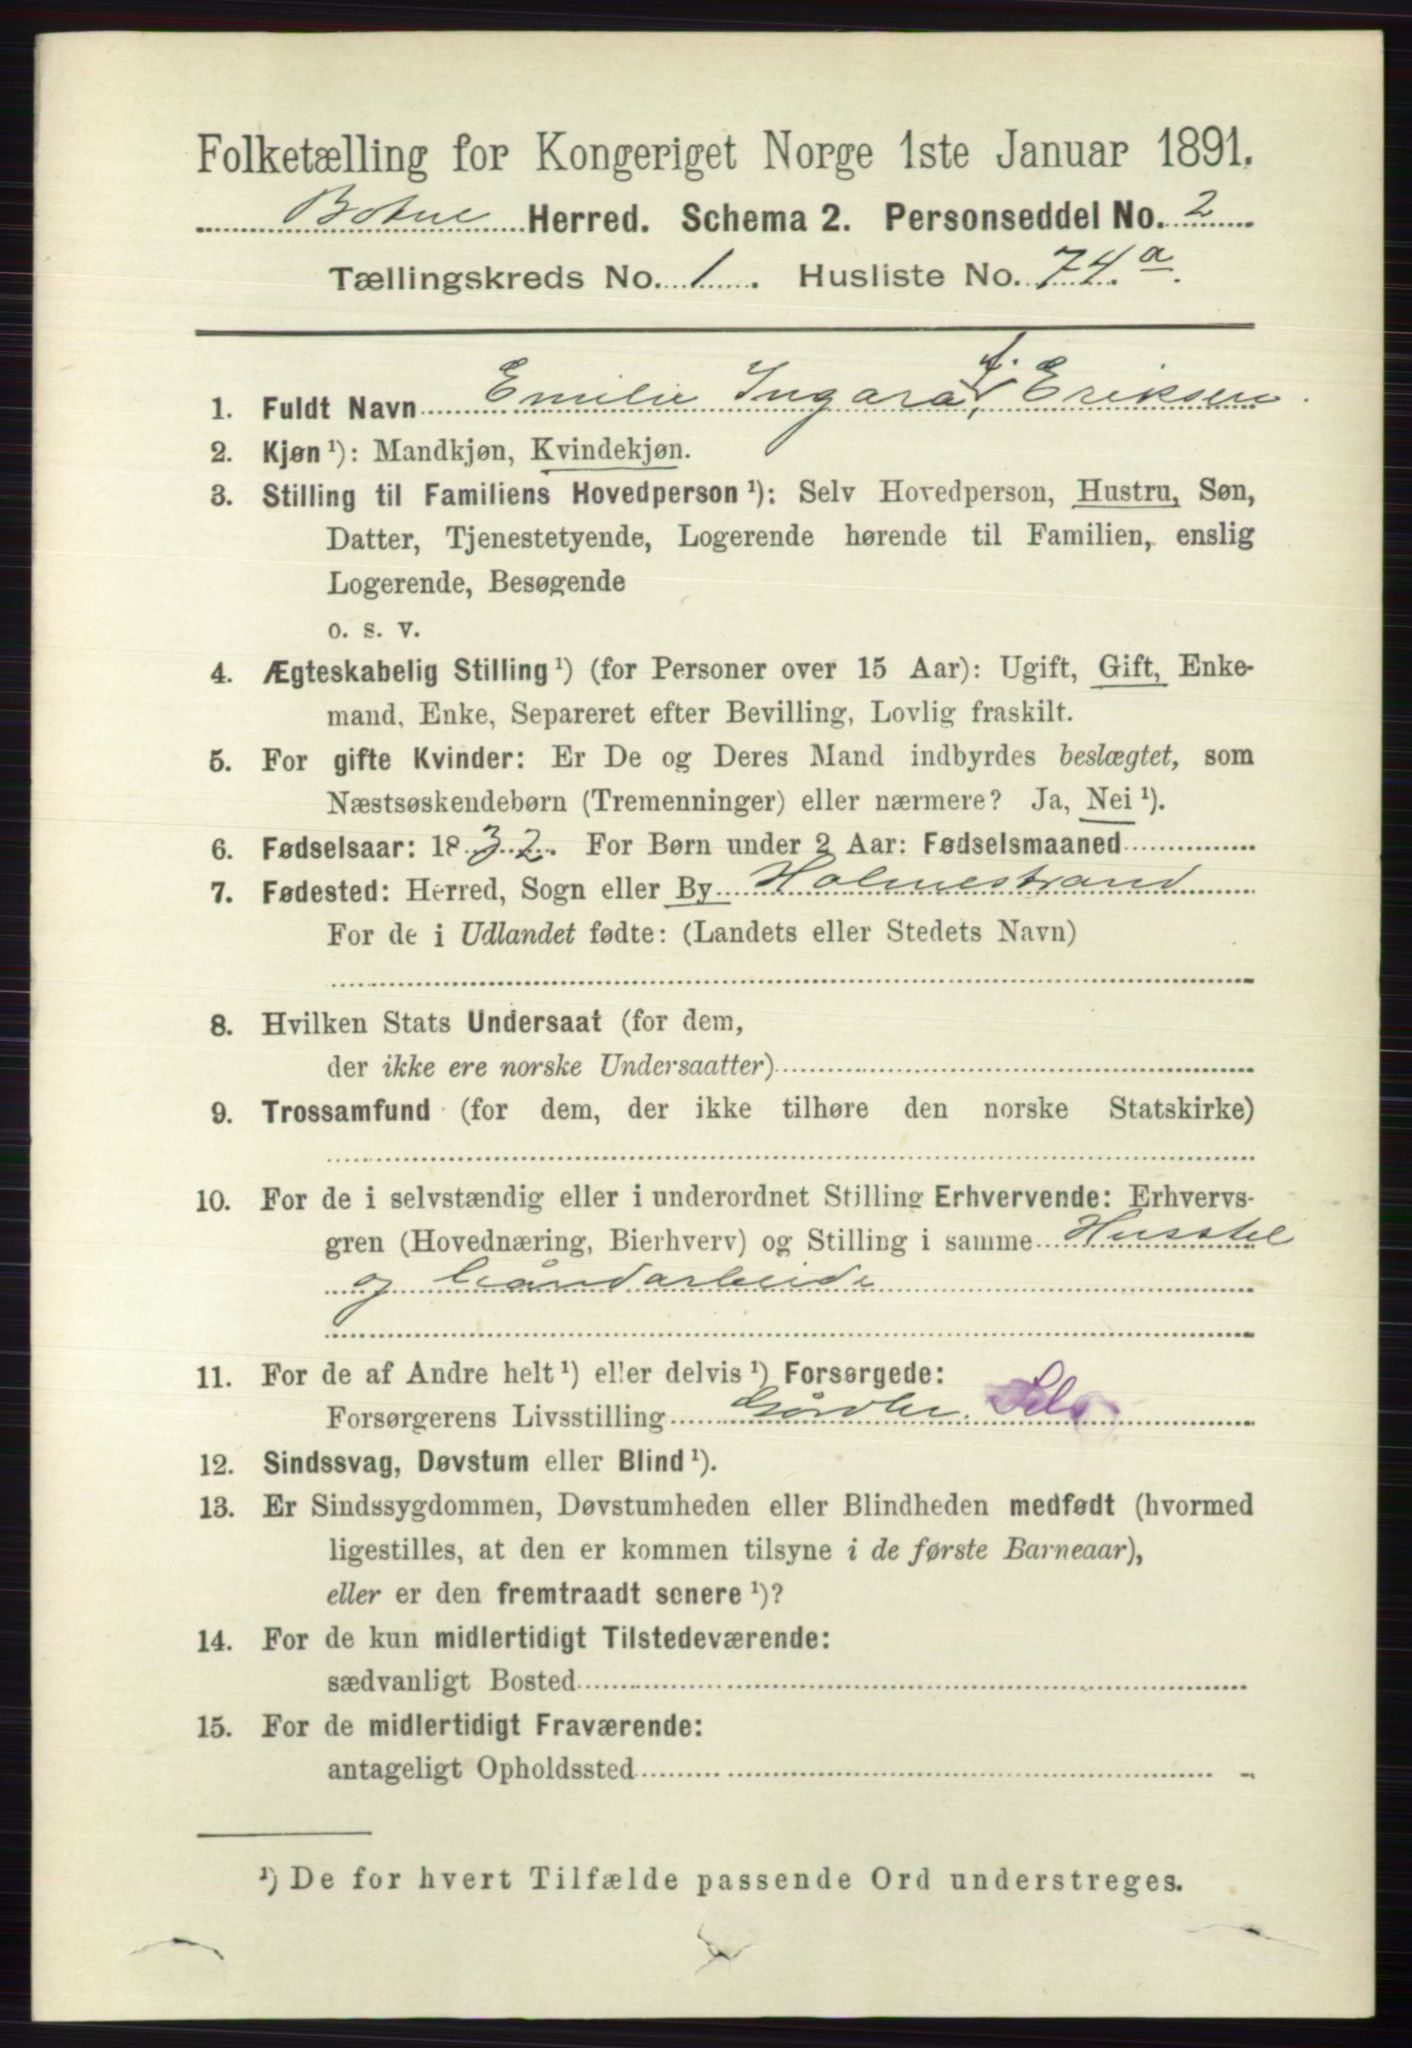 Folketælling for Kongeriget Norge 1ste Januar 1891.
Botne Herred. Schema 2. Personseddel No. 2
Tællingskreds No. 1. Husliste No. 74.a
f.
1. Fuldt Navn Emilie Ingara, Eriksen
2. Kjøn ¹): Mandkjøn, Kvindekjøn.
3. Stilling til Familiens Hovedperson ¹): Selv Hovedperson, Hustru, Søn,
Datter, Tjenestetyende, Logerende hørende til Familien, enslig
Logerende, Besøgende
o. s. v.
4. Ægteskabelig Stilling ¹) (for Personer over 15 Aar): Ugift, Gift, Enke-
mand, Enke, Separeret efter Bevilling, Lovlig fraskilt.
5. For gifte Kvinder: Er De og Deres Mand indbyrdes beslægtet, som
Næstsøskendebørn (Tremenninger) eller nærmere? Ja, Nei ¹).
6. Fødselsaar: 1832. For Børn under 2 Aar: Fødselsmaaned
7. Fødested: Herred, Sogn eller By Holmestrand
For de i Udlandet fødte: (Landets eller Stedets Navn)
8. Hvilken Stats Undersaat (for dem,
der ikke ere norske Undersaatter)
9. Trossamfund (for dem, der ikke tilhøre den norske Statskirke)
10. For de i selvstændig eller i underordnet Stilling Erhvervende: Erhvervs-
gren (Hovednæring, Bierhverv) og Stilling i samme Husstel
og håndarbeide
11. For de af Andre helt ¹) eller delvis ¹) Forsørgede:
Forsørgerens Livsstilling Gårdbr. Selv
12. Sindssvag, Døvstum eller Blind ¹).
13. Er Sindssygdommen, Døvstumheden eller Blindheden medfødt (hvormed
ligestilles, at den er kommen tilsyne i de første Barneaar),
eller er den fremtraadt senere ¹)?
14. For de kun midlertidigt Tilstedeværende:
sædvanligt Bosted
15. For de midlertidigt Fraværende:
antageligt Opholdssted
¹) De for hvert Tilfælde passende Ord understreges.